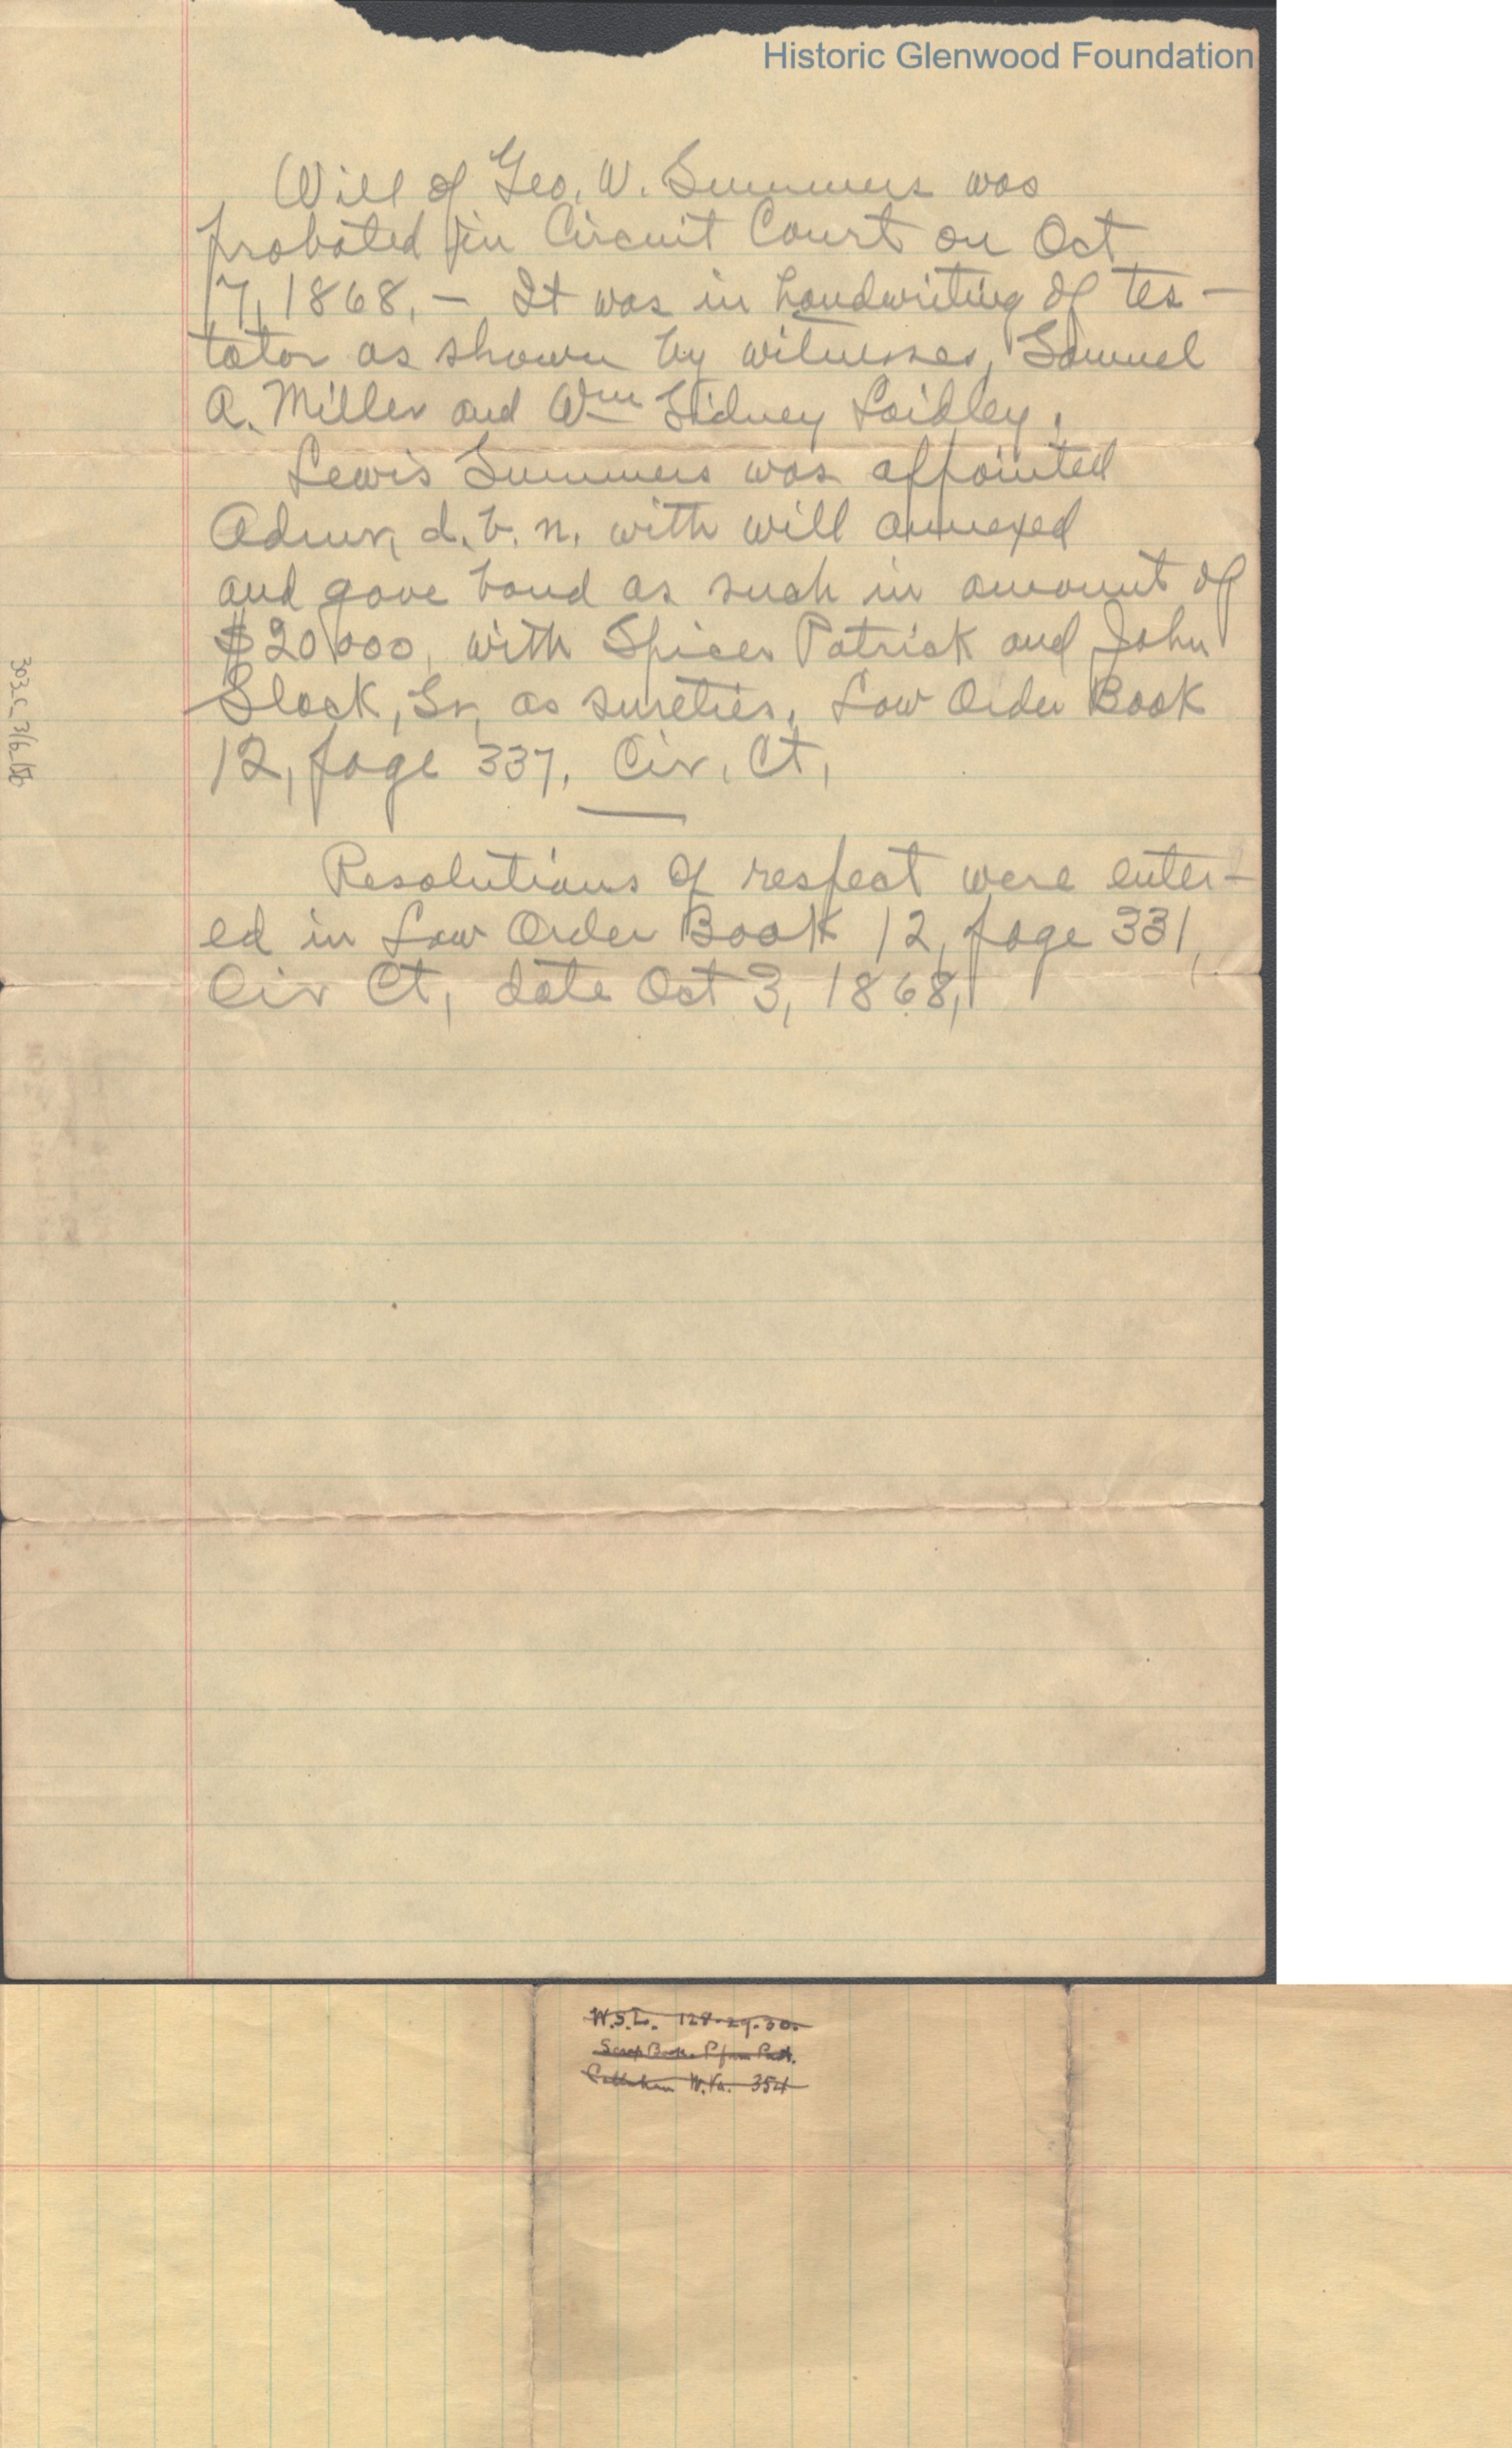 Historic Glenwood Foundation
Will of Geo. W. Summers was
probated in Circuit Court on Oct
7, 1868, – It was in handwriting of tes-
tator as shown by witnesses, Samuel
A. Miller and Wm Sidney Laidley.
Lewis Summers was appointed
Admr, d. b. n. with will annexed
and gave bond as such in amount of
$20,000, with Spicer Patrick and John
Slack, Sr, as sureties, Law Order Book
12, page 337. Cir. Ct,
Resolutions of respect were enter-
ed in Law Order Book 12, page 331,
Cir Ct, date Oct 3, 1868,
W.S.L. 128-29-30.
Scrap Book
W.Va. 354